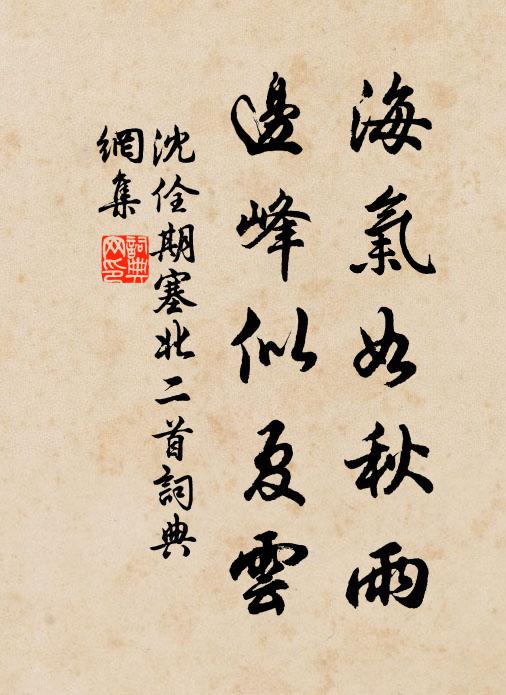 海氣如秋雨
邊峰似夏雲
沈佺期塞北二首詞典
網集
詞典
网印